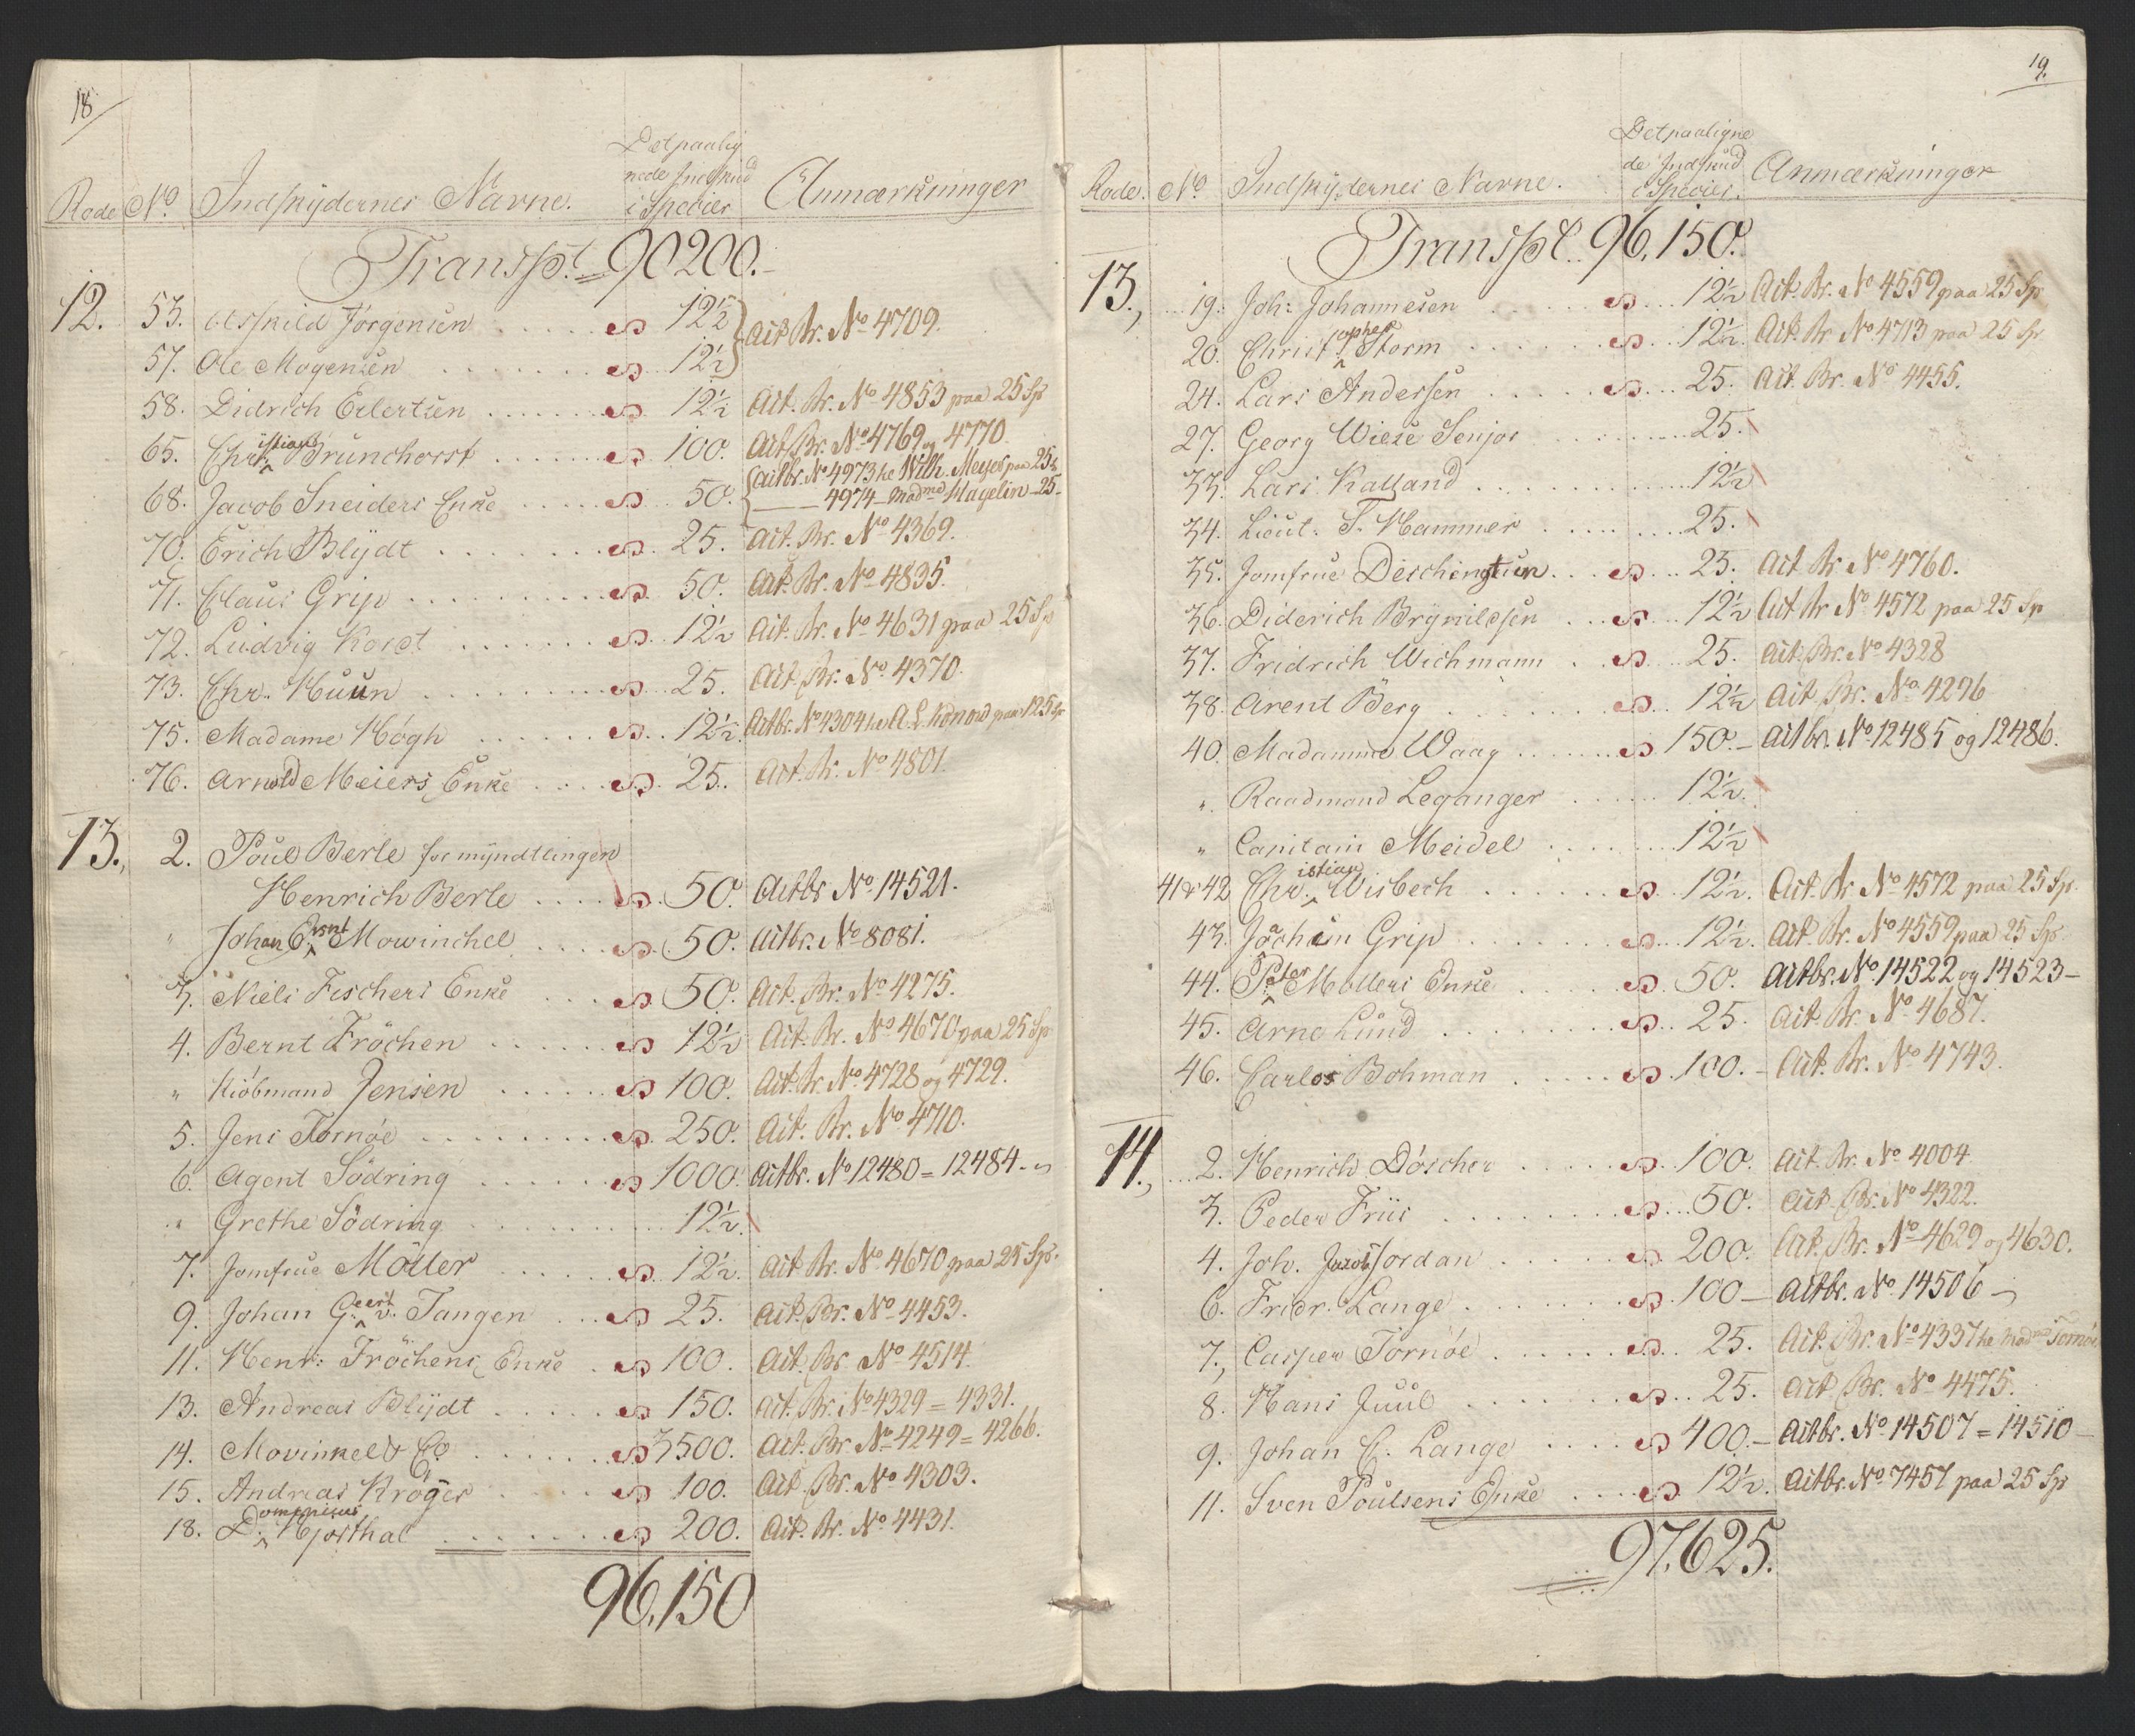 18
Rode No. Indskydernes Navne. Det paalignede Indskud i Species Anmærkninger
Transpt. 90200.
12. 53. Asskild Jörgensen 12½ Act. Br. No 4709.
57. Ole Mogensen 12½
58. Didrich Eilertsen 12½ Act. Br. No 4853 paa 25 Sp
65. Christian Brunchorst 100. Act. Br. No 4769 og 4770.
68. Jacob Sneiders Enke 50. Actbr. No 4973 he Wilh. Meyer paa 25 s
4974 - Madme Hagelin - 25 -
70. Erich Blÿdt 25. Act. Br. No 4369.
71. Claus Grip 50. Act. Br. No 4835.
72. Ludvig Kordt 12½ Act. Br. No 4631 paa 25 Sp
73. Chr. Huun 25. Act. Br. No 4370.
75. Madame Högh 12½ Actbr. No 4304 he A. L. Konow paa 125 Sp
76. Arnold Meiers Enke 25. Act. Br. No 4801.
13., 2. Poul Berle for myndtlingen
Henrich Berle 50. Actbr No 14521.
" Johan Ernst Mowinchel 50. Actbr. No 8081.
3. Niels Fischers Enke 50. Act. Br. No 4275.
4. Bernt Fröchen 12½ Act. Br. No 4670 paa 25 Sp
" Kiöbmand Jensen 100. Act. Br. No 4728 og 4729.
5. Jens Tornöe 250. Act. Br. No 4710.
6. Agent Södring 1000. Actbr. No 12480 = 12484
" Grethe Södring 12½
7. Jomfrue Möller 12½. Act Br. No 4670 paa 25 Sp.
9. Johan Geert v. Tangen 25. Act. Br. No 4453.
11. Henr: Fröchens Enke 100. Act. Br. No 4514.
13. Andreas Blÿdt 150. Act. Br. No 4329 = 4331.
14. Movinkel & Co 3500. Act. Br. No 4249 = 4266.
15. Andreas Kröger 100. Act. Br. No 4303.
18. D. Hjorthal 200. Act. Br. No 4431.
96,150
19.
Rode. No. Indskydernes Navne. Det paalignede Indskud i Species. Anmærkninger
Transpt. 96,150.
13., 19. Joh: Johannesen 12½ Act. Br. No 4559 paa 25 Sp
20. Christopher Storm 12½. Act. Br No 4713 paa 25 Sp
24. Lars Andersen 25. Act. Br. No 4455.
27. Georg Wiese Senjor 25.
33. Lars Kalland 12½
34. Lieut. F. Hammer 25.
35. Jomfrue Deschingtun 25. Act Br No 4760.
36. Diderich Brÿnildsen 12½ Act Br No 4572 paa 25 Sp
37. Fridrich Wichmann 25. Act. Br. No 4328
38. Arent Berg 12½ Act Br. No 4296
40. Madamme Waag 150. - Actbr. No 12485 og 12486.
" Raadmand Leganger 12½.
" Capitain Meidel 12½
41 & 42 Christian Wisbech 12½. Act. Br No 4572 paa 25 Sp.
43. Jochim Grip 12½. Act. Br. No 4559 paa 25 Sp
44. Peter Möllers Enke 50. Actbr. No 14522 og 14523 -
45. Arne Lund 25. Act. Br. No 4687.
46. Carlos Bohman 100. - Act. Br. No 4743.
14., 2. Henrich Döscher 100. Act. Br. No 4004
3. Peder Friis 50. Act. Br. No 4322.
4. Joh. Jacob Jordan 200. Act. Br. No 4629 og 4630.
6. Fridr. Lange 100 - Actbr. No 14506
7., Casper Tornöe 25. Act. Br. No 4337 he Madme Tornöe
8. Hans Juul 25. Act. Br. No 4475.
9. Johan C. Lange 400. - Actbr. No 14507 = 14510 -
11. Sven Poulsens Enke 12½. Actbr. No 7457 paa 25 Sp
97,625.